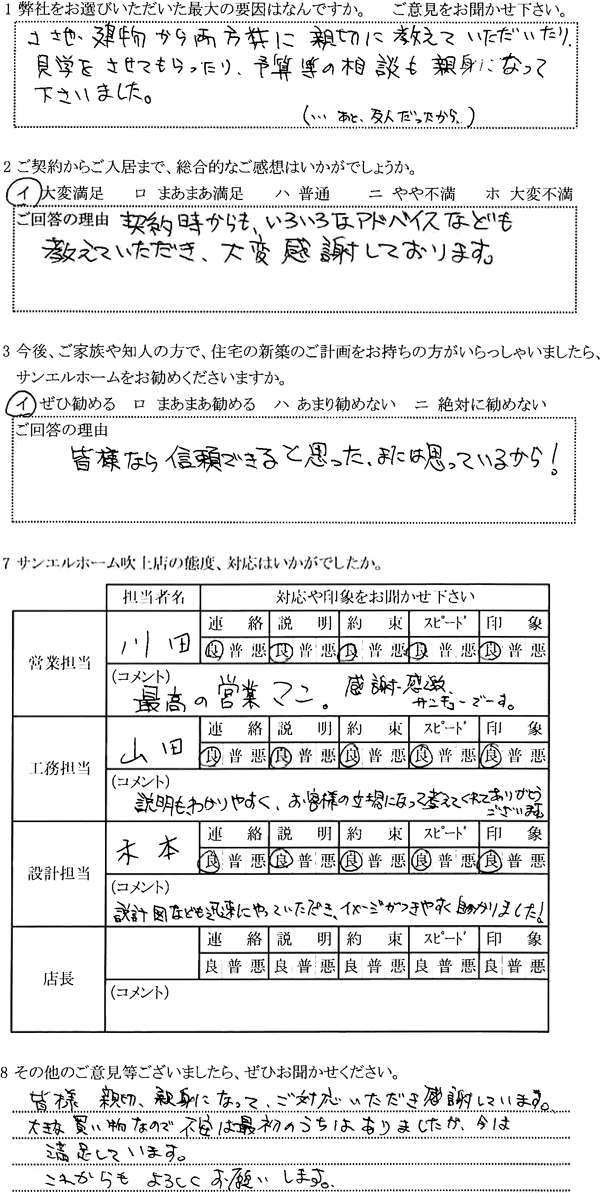 1 弊社をお選びいただいた最大の要因はなんですか。 ご意見をお聞かせ下さい。
ささや、建物から両方共に 親切に教えていただいたり、
見学をさせてもらったり、予算等の相談も親身になって
下さいました。
(… あと、友人だったから。)
2 ご契約からご入居まで、総合的なご感想はいかがでしょうか。
イ 大変満足 ロ まあまあ満足 ハ 普通 ニ やや不満 ホ 大変不満
ご回答の理由 契約時からも、いろいろなアドバイスなども
教えていただき、大変感謝しております。
3 今後、ご家族や知人の方で、住宅の新築のご計画をお持ちの方がいらっしゃいましたら、
サンエルホームをお勧めくださいますか。
イ ぜひ勧める ロ まあまあ勧める ハ あまり勧めない ニ 絶対に勧めない
ご回答の理由
皆様なら信頼できると思った、または思っているから!
7 サンエルホーム吹上店の態度、対応はいかがでしたか。
担当者名 対応や印象をお聞かせ下さい
営業担当 川田 連絡 説明 約束 スピード 印象
良 普 悪 良 普 悪 良 普 悪 良 普 悪 良 普 悪
(コメント)
最高の営業マン。 感謝 感激、
サンキューでーす。
工務担当 山田 連絡 説明 約束 スピード 印象
良 普 悪 良 普 悪 良 普 悪 良 普 悪 良 普 悪
(コメント)
説明もわかりやすく、お客様の立場になって考えてくれてありがとう
ございます。
設計担当 木本 連絡 説明 約束 スピード 印象
良 普 悪 良 普 悪 良 普 悪 良 普 悪 良 普 悪
(コメント)
設計図なども迅速にやっていただき、イメージがつきやすく助かりました!
店長 連絡 説明 約束 スピード 印象
良 普 悪 良 普 悪 良 普 悪 良 普 悪 良 普 悪
(コメント)
8 その他のご意見等ございましたら、ぜひお聞かせください。
皆様 親切、親身になって、ご対応いただき感謝しています。
大きな買い物なので不安は最初のうちはありましたが、今は
満足しています。
これからも よろしくお願いします。